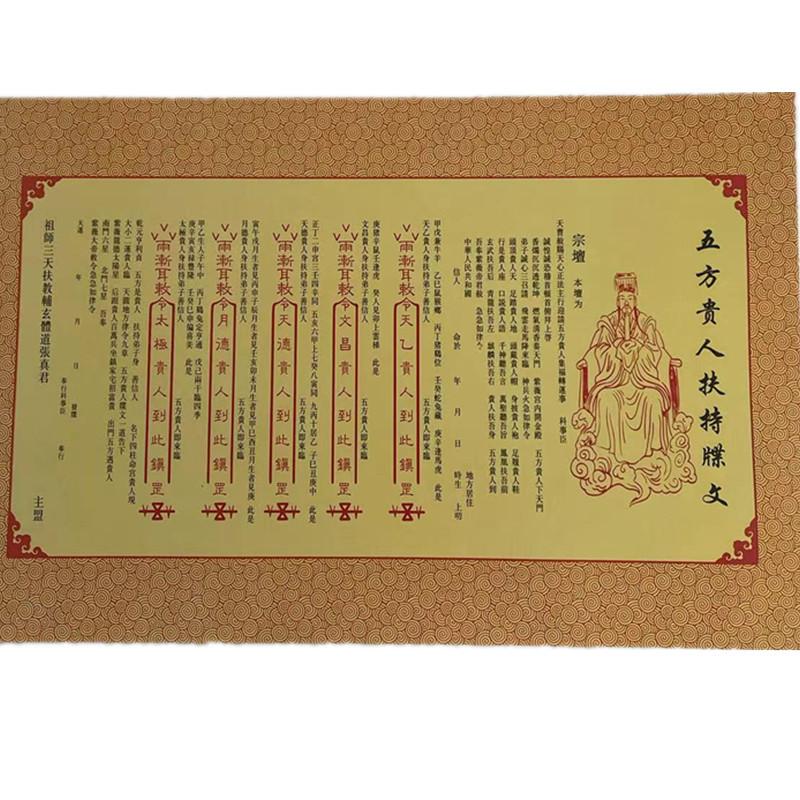 五方貴人扶持牒文
宗壇 本壇为
天曹敕賜天心正法主行迎請五方貴人集福轉運事 科事臣
誠惶誠恐稽首頓首俯拜上啓
香烟沉沉透乾坤 燃氣清香奏天門 紫薇宮内開金殿 五方貴人下天門
弟子誠心三召請 飛雲走馬降來臨 神兵火急如律令
頭頂貴人天 足踏貴人地 頭戴貴人帽 身披貴人袍 足履貴人鞋
行是貴人座 口説貴人語 千神聽吾言 萬聖聽吾旨 鳳凰扶吾前
玄武扶吾后 青龍扶吾左 麒麟扶吾右 貴人扶吾身 五方貴人到
吾奉紫薇帝君敕 急急如律令
中華人民共和國 地方居住
信人 命於 年 月 日 時生 上明
甲戊兼牛羊 乙巳鼠猴鄉 丙丁猪鷄位 壬癸蛇兔藏 庚辛逢馬虎 此是
天乙貴人身扶持弟子善信人 五方貴人即來臨
雨漸耳敕令天乙貴人到此鎮罡
庚猪辛鼠壬逢虎 癸人見卯上雲梯 此是
文昌貴人身扶持弟子善信人 五方貴人即來臨
雨漸耳敕令文昌貴人到此鎮罡
正丁二申宫三壬四辛同 五亥六甲上七癸八寅同 九丙十居乙 子巳丑庚中 此是
天德貴人身扶持弟子善信人 五方貴人即來臨
雨漸耳敕令天德貴人到此鎮罡
寅午戌月生者見丙申子辰月生者見壬亥卯未月生者見甲巳酉丑月生者見庚 此是
月德貴人身扶持弟子善信人 五方貴人即來臨
雨漸耳敕令月德貴人到此鎮罡
甲乙生人子午中 丙丁鷄兔定亨通 戊己兩干臨四季
庚辛寅亥禄豐隆 壬癸巳申偏喜美 此是
太極貴人身扶持弟子善信人 五方貴人即來臨
雨漸耳敕令太極貴人到此鎮罡
乾元亨利貞 五方是貴人 扶持弟子身 善信人 名下四柱命宫貴人現
大小二運貴人臨 天圓地方律令九章 五方貴人牒文一道告下
紫薇龍德太陽星 后跟貴人百萬兵坐鎮家宅招富貴 出門五方遇貴人
南門六星 北門七星 吾奉
紫薇大帝敕令急急如律令
天運 年 月 日 發牒
奉行科事臣 奉行
祖師三天扶教輔玄體道張真君 主盟